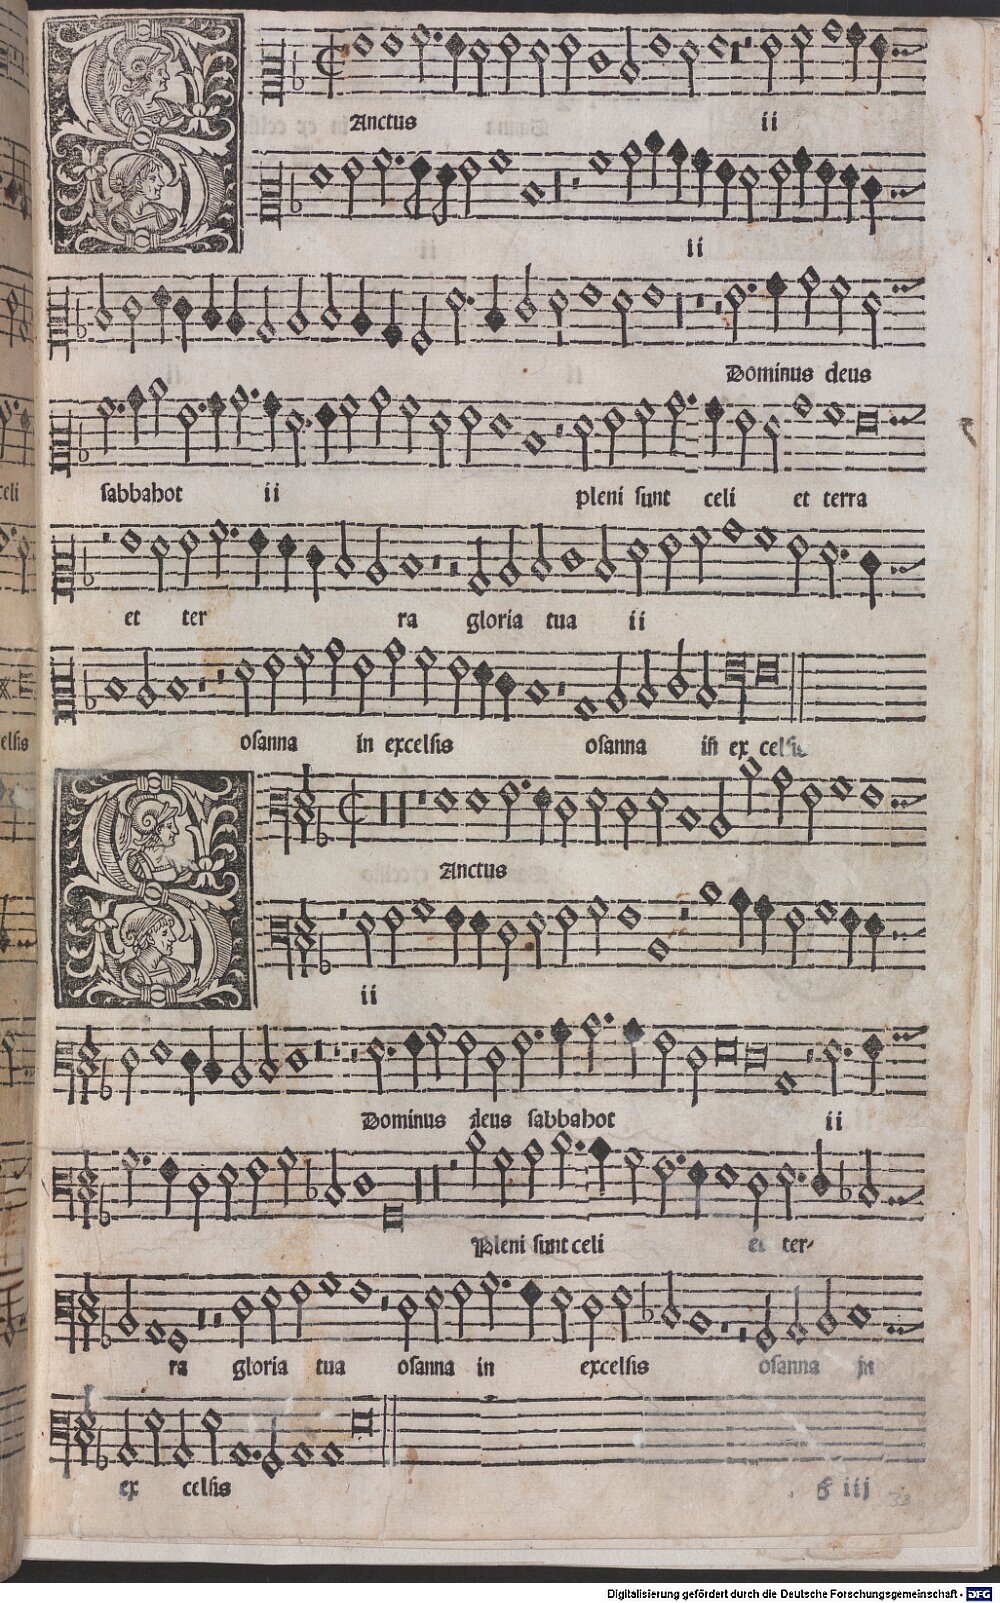 SAnctus ii
ii
Dominus deus
sabbahot ii pleni sunt celi et terra
et ter ra gloria tua ii
osanna in excelsis osanna in ex celsis
SAnctus
ii
Dominus deus sabbahot ii
Pleni sunt celi et ter-
ra gloria tua osanna in excelsis osanna in
ex celsis
F iij
33
celi
elsis
Digitalisierung gefördert durch die Deutsche Forschungsgemeinschaft - DFG